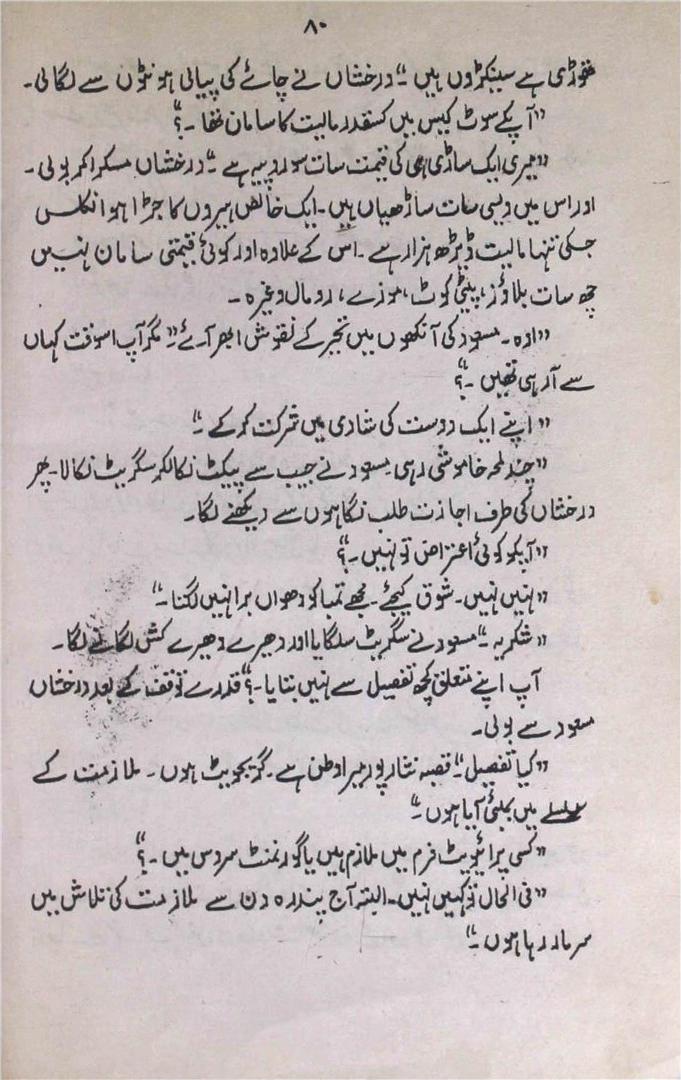 ۸۰
تھوڑی ہے سینکڑوں ہیں ۔" درخشاں نے چائے کی پیالی ہونٹوں سے لگا لی ۔
"آپکے سوٹ کیس میں کسقدر مالیت کا سامان تھا ۔؟"
"میری ایک ساڑی ہی کی قیمت سات سو روپیہ ہے ۔" درخشاں مسکرا کر بولی ۔
اور اس میں ویسی سات ساڑھیاں ہیں ۔ ایک خالص ہیروں کا جڑا ہوا نکلس
جسکی تنہا مالیت ڈیڑھ ہزار ہے ۔ اس کے علاوہ اور کوئی قیمتی سامان نہیں
چھ سات بلاؤز، پیٹی کوٹ، موزے، رومال وغیرہ ۔
"اوہ ۔ مسعود کی آنکھوں میں تحیر کے نقوش ابھر آئے" مگر آپ اسوقت کہاں
سے آ رہی تھیں ۔؟"
"اپنے ایک دوست کی شادی میں شرکت کر کے ۔"
"چند لمحہ خاموشی رہی مسعود نے جیب سے پیکٹ نکالکر سگریٹ نکالا ۔ پھر
درخشاں کی طرف اجازت طلب نگاہوں سے دیکھنے لگا ۔
"آپکو کوئی اعتراض تو نہیں ۔؟"
"نہیں نہیں ۔ شوق کیجئے ۔ مجھے تمباکو دھواں برا نہیں لگتا ۔"
"شکریہ ۔" مسعود نے سگریٹ سلگایا اور دھیرے دھیرے کش لگانے لگا ۔
آپ اپنے متعلق کچھ تفصیل سے نہیں بتایا ۔؟" قدرے توقف کے بعد درخشاں
مسعود سے بولی ۔
"کیا تفصیل ۔" قصبہ نثار پور میرا وطن ہے ۔ گریجویٹ ہوں ۔ ملازمت کے
سلسلے میں بمبئی آیا ہوں ۔"
"کسی پرائیویٹ فرم میں ملازم ہیں یا گورنمنٹ سروس میں ۔؟"
"فی الحال تو کہیں نہیں ۔ البتہ آج پندرہ دن سے ملازمت کی تلاش میں
سر مار رہا ہوں ۔"